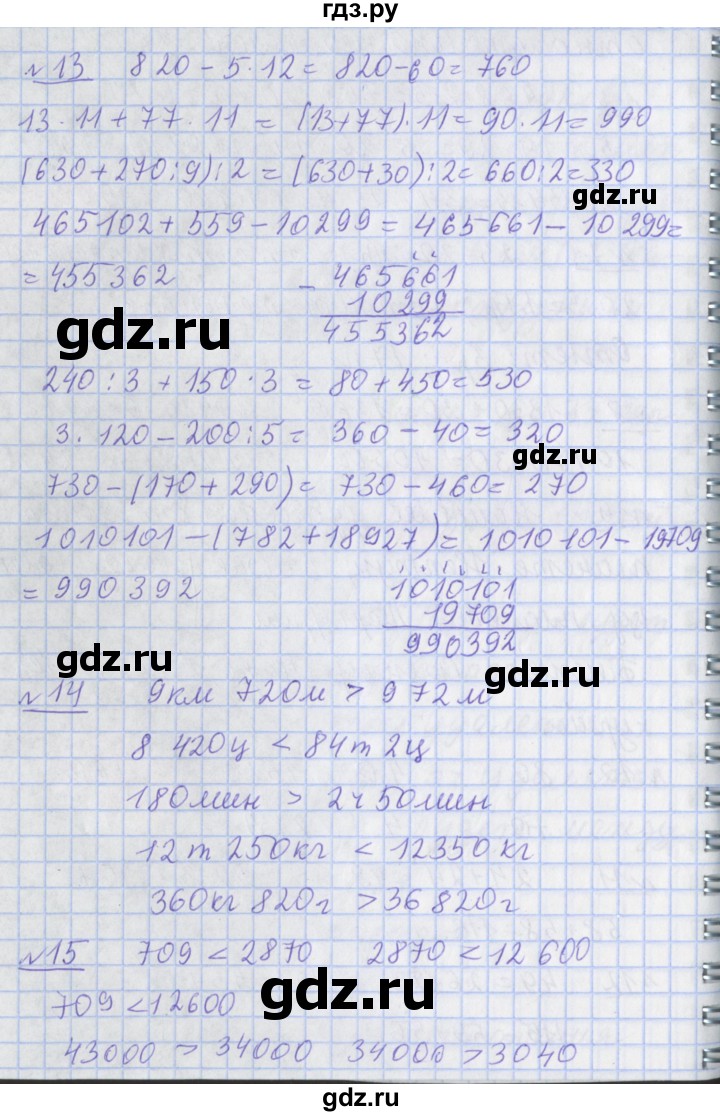 гдз.ру
№13 820 - 5·12 = 820-60 = 760
13·11 + 77·11 = (13+77)·11 = 90·11 = 990
(630+270:9):2 = (630+30):2 = 660:2 = 330
gdz.ru
465102 + 559 - 10299 = 465661 - 10299 =
= 455362
- 465661
10299
455362
gdz.ru
240:3 + 150·3 = 80 + 450 = 530
3·120 - 200:5 = 360 - 40 = 320
gdz.ru
730 - (170 + 290) = 730 - 460 = 270
1010101 - (782 + 18927) = 1010101 - 19709
= 990392
1010101
19709
990392
gdz.ru
gdz.ru
№14 9км 720м > 972м
8 420ц < 84т 2ц
180мин > 2ч 50мин
12т 250кг < 12350кг
360кг 820г > 36820г
№15 709 < 2870 2870 < 12600
709 < 12600
gdz.ru
43000 > 34000 34000 > 3040
gdz.ru